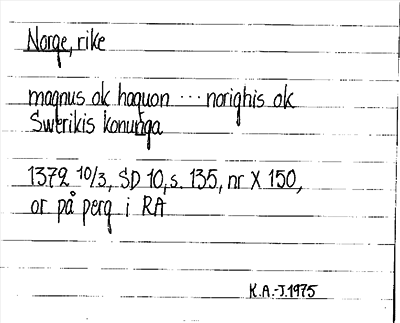 Norge, rike
magnus ok haquon ... norighis ok
Swerikis konunga
1372 10/3, SD 10, s. 135, nr X 150,
or på perg i RA
K.A.-J.1975